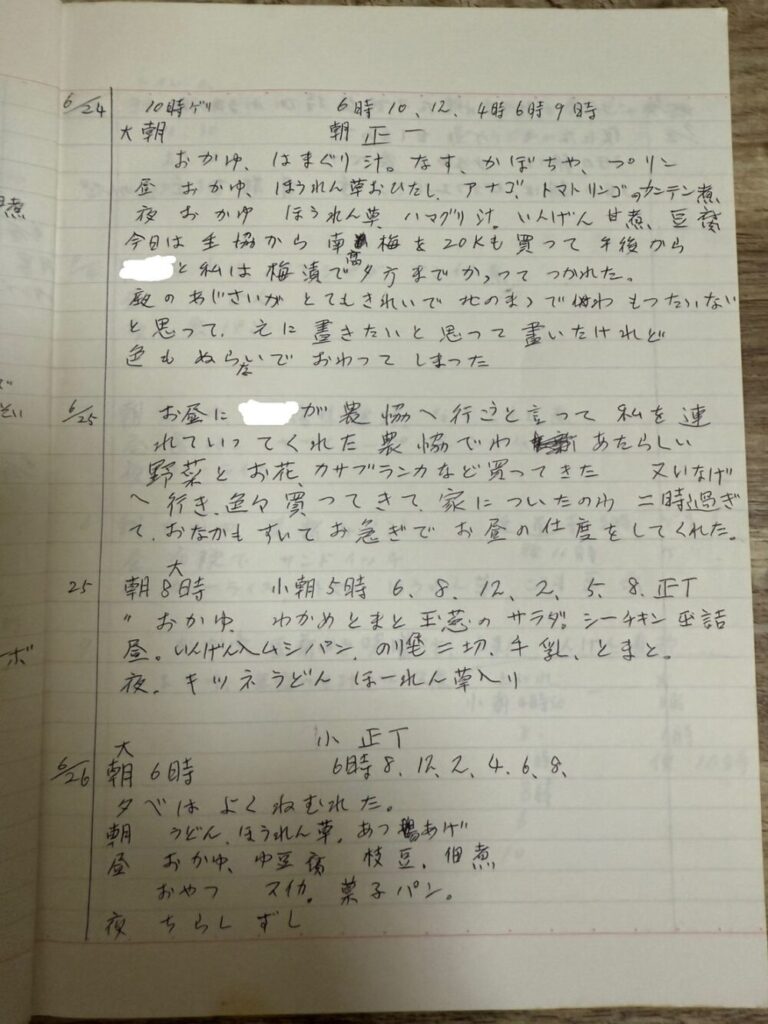 6/24 10時ゲリ 6時10、12、4時6時9時
大朝 朝 正一
おかゆ、はまぐり汁。なす、かぼちゃ、プリン
昼 おかゆ、ほうれん草おひたし、アナゴ、トマトリンゴのカンテン煮
夜 おかゆ ほうれん草、ハマグリ汁。いんげん甘煮、豆腐
今日は生協から南高梅を20Kも買って午後から
と私は梅漬で夕方までかかってつかれた。
庭のあじさいがとてもきれいで このまゝでわもったいない
と思って、え に書きたいと思って書いたけれど
色もぬらないでおわってしまった
6/25 お昼に が農協へ行こうと言って 私を連
れていってくれた農協でわ あたらしい
野菜とお花、カサブランカなど買ってきた 又いなげ
へ行き、色々買ってきて、家についたのわ 二時過ぎ
て、おなかもすいてお急ぎで お昼の仕度をしてくれた。
大
25 朝8時 小朝5時 6、8、12、2、5、8、正T
〃 おかゆ、わかめとまと玉葱のサラダ。シーチキン 缶詰
昼。いんげん入ムシパン、のり巻二切、牛乳、とまと。
夜。キツネうどん ほーれん草入り
大 小 正T
6/26 朝6時 6時8、12、2、4、6、8、
夕べはよくねむれた。
朝 うどん、ほうれん草、あつあげ
昼 おかゆ、ゆ豆腐 枝豆、佃煮
おやつ スイカ。菓子パン。
夜 ちらしずし